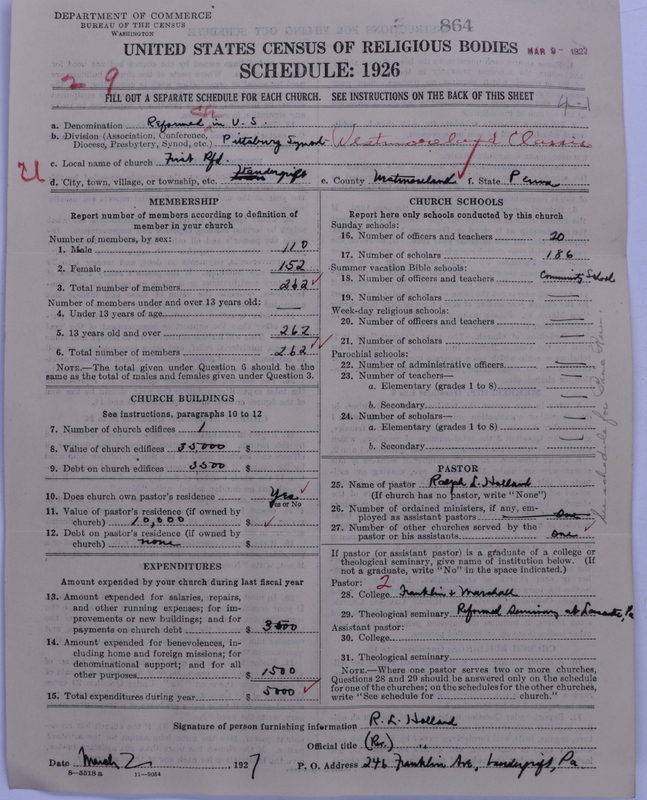 DEPARTMENT OF COMMERCE
BUREAU OF THE CENSUS
WASHINGTON
864
UNITED STATES CENSUS OF RELIGIOUS BODIES
MAR 9 - 192
SCHEDULE: 1926
2 9
FILL OUT A SEPARATE SCHEDULE FOR EACH CHURCH. SEE INSTRUCTIONS ON THE BACK OF THIS SHEET
4-1
a. Denomination Reformed Ch. in U. S.
b. Division (Association, Conference, Diocese, Presbytery, Synod, etc.) Pittsburg Synod Westmoreland Classis
c. Local name of church First Rfd.
d. City, town, village, or township, etc. Vandergrift e. County Westmoreland f. State Penna
MEMBERSHIP
Report number of members according to definition of
member in your church
Number of members, by sex:
1. Male 110
2. Female 152
3. Total number of members 262
Number of members under and over 13 years old:
4. Under 13 years of age —
5. 13 years old and over 262
6. Total number of members 262
NOTE.—The total given under Question 6 should be the
same as the total of males and females given under Question 3.
CHURCH BUILDINGS
See instructions, paragraphs 10 to 12
7. Number of church edifices 1
8. Value of church edifices 35000 $
9. Debt on church edifices 3500 $
10. Does church own pastor's residence Yes
Yes or No
11. Value of pastor's residence (if owned by
church) 10,000 $
12. Debt on pastor's residence (if owned by
church) none $
EXPENDITURES
Amount expended by your church during last fiscal year
13. Amount expended for salaries, repairs,
and other running expenses; for im-
provements or new buildings; and for
payments on church debt $ 3500
14. Amount expended for benevolences, in-
cluding home and foreign missions; for
denominational support; and for all
other purposes $ 1500
15. Total expenditures during year $ 5000
CHURCH SCHOOLS
Report here only schools conducted by this church
Sunday schools:
16. Number of officers and teachers 20
17. Number of scholars 186
Summer vacation Bible schools:
18. Number of officers and teachers Community School
19. Number of scholars —
Week-day religious schools:
20. Number of officers and teachers —
21. Number of scholars —
Parochial schools:
22. Number of administrative officers —
23. Number of teachers—
a. Elementary (grades 1 to 8) —
b. Secondary —
24. Number of scholars—
a. Elementary (grades 1 to 8) —
b. Secondary —
See schedule for
PASTOR
25. Name of pastor Ralph L. Holland
(If church has no pastor, write "None")
26. Number of ordained ministers, if any, em-
ployed as assistant pastors one
27. Number of other churches served by the
pastor or his assistants one
If pastor (or assistant pastor) is a graduate of a college or
theological seminary, give name of institution below. (If
not a graduate, write "No" in the space indicated.)
Pastor: 2
28. College Franklin + Marshall
29. Theological seminary Reformed Seminary at Lancaster, Pa
Assistant pastor:
30. College
31. Theological seminary
NOTE.—Where one pastor serves two or more churches,
Questions 28 and 29 should be answered only on the schedule
for one of the churches; on the schedules for the other churches,
write "See schedule for church."
Signature of person furnishing information R. L. Holland
Official title (Rev.)
Date March 2, 1927 P. O. Address 246 Franklin Ave, Vandergrift, Pa
8—5518 a 11—9054